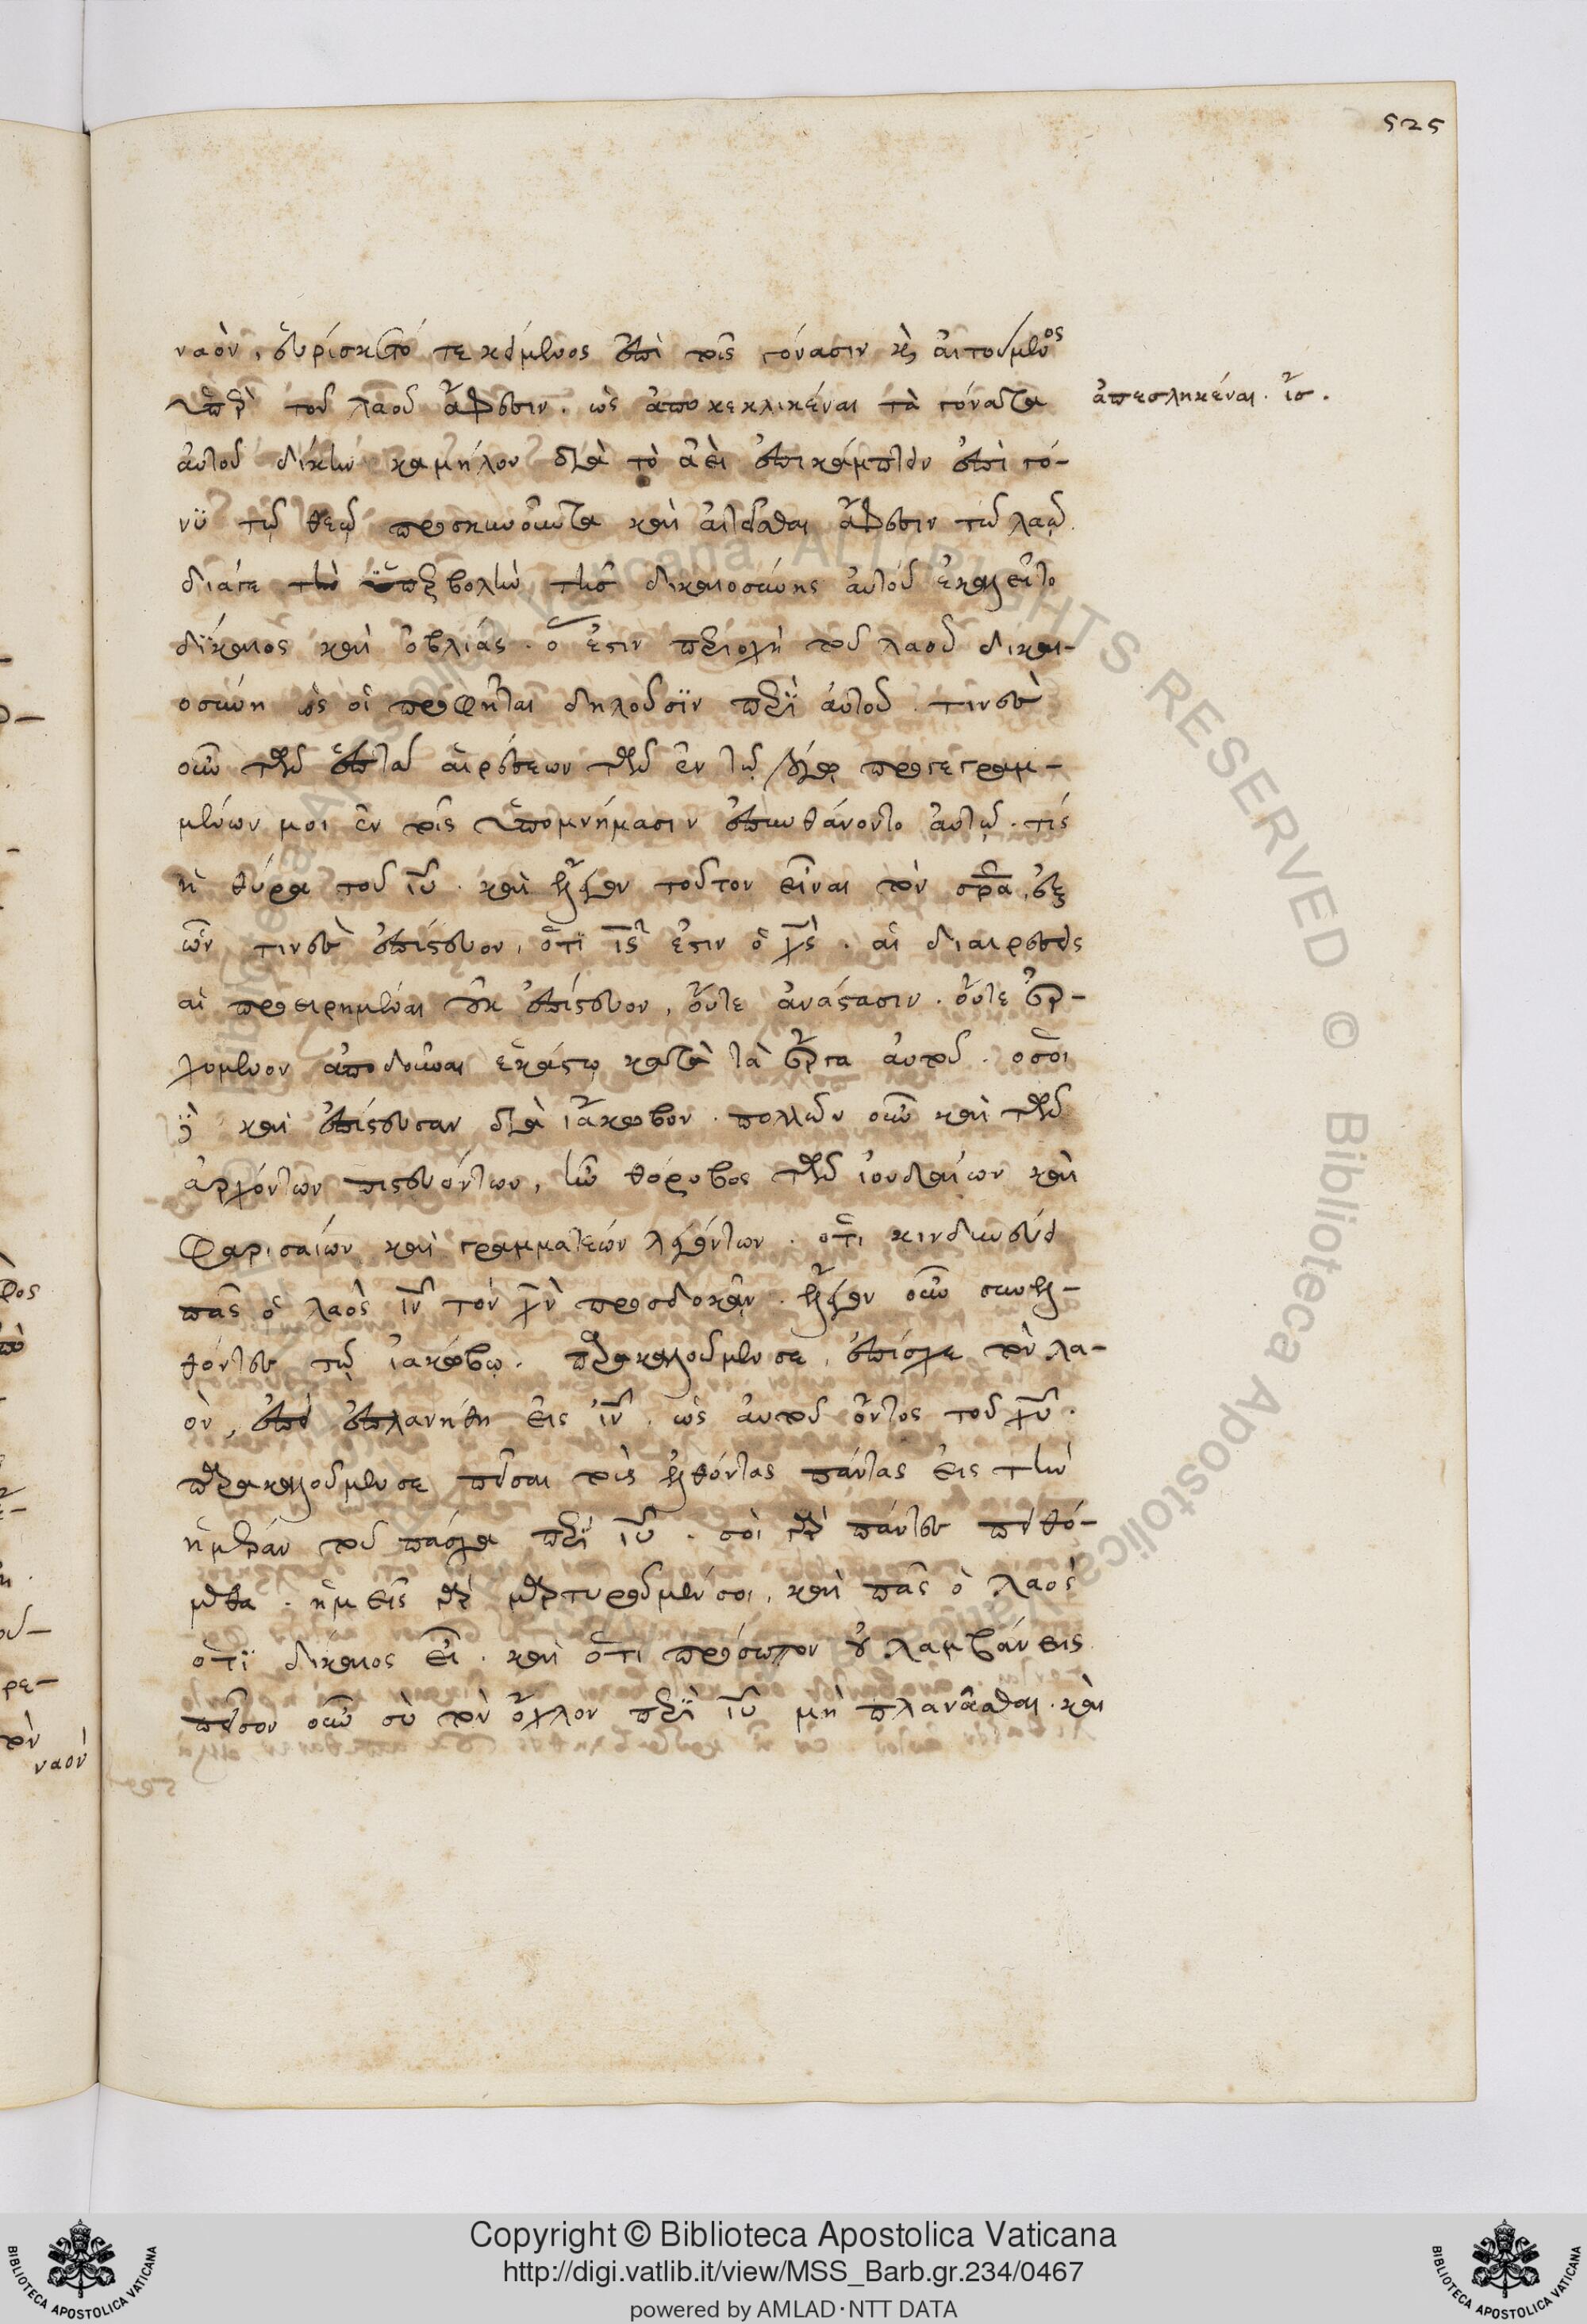 525
ναὸν, εὑρίσκετό τε κείμενος ἐπὶ τοῖς γόνασιν κὶ αἰτούμενος
ὑπὲρ τοῦ λαοῦ ἄφεσιν. ὡς ἀποκεκλικέναι τὰ γόνατα
ἀπεσληκέναι. ἴσ.
αὐτοῦ δίκην καμήλου διὰ τὸ ἀεὶ ἐπικάμπτειν ἐπὶ γό-
νϋ τῷ θεῷ προσκυνοῦντα καὶ αἰτεῖσθαι ἄφεσιν τῷ λαῷ.
διάγε τὴν ὑπερβολὴν τῆς δικαιοσύνης αὐτοῦ ἐκαλεῖτο
δίκαιος καὶ ὀβλίας. ὅ ἐστιν περιοχὴ τοῦ λαοῦ δικαι-
οσύνη ὡς οἱ προφῆται δηλοῦσϊν περὶ αὐτοῦ. τινὲς
οὖν τῶν ἑπτὰ αἱρέσεων τῶν ἐν τῷ λαῷ προγεγραμ-
μένων μοι ἐν τοῖς ὑπομνήμασιν ἐπυνθάνοντο αὐτῷ. τίς
ἡ θύρα τοῦ ἰῦ. καὶ ἔλεγεν τοῦτον εἶναι τὸν σρᾱ, ἐξ
ὧν τινὲς ἐπίστευον, ὅτϊ ἰς̅ ἐστιν ὁ χς̅. αἱ διαιρέσεις
αἱ προειρημέναι οὐκ ἐπίστευον, οὔτε ἀνάστασιν. οὔτε ἐρ-
χόμενον ἀποδοῦναι ἑκάστῳ κατὰ τὰ ἔργα αὐτοῦ. ὅσοι
δὲ καὶ ἐπίστευσαν διὰ ἰάκωβον. πολλῶν οὖν καὶ τῶν
ἀρχόντων πιστευόντων, ἦν θόρυβος τῶν ἰουδαίων καὶ
Φαρισαίων καὶ γραμματέων λεγόντων. ὅτι κινδυνεύει
πᾶς ὁ λαὸς ἰν̅ τὸν χν̅ προσδοκᾶν. ἔλεγον οὖν συνελ-
θόντες τῷ ἰακώβῳ. παρακαλοῦμέν σε, ἐπίσχε τὸν λα-
ὸν, ἐπεὶ ἐπλανήθη εἰς ἰν̅. ὡς αὐτοῦ ὄντος τοῦ χῦ.
παρακαλοῦμέν σε πεῖσαι τοὺς ἐλθόντας πάντας εἰς τὴν
ἡμέραν τοῦ πάσχα περὶ ἰῦ. σοὶ γὰρ πάντες πειθό-
μεθα. ἡμεῖς γὰρ μαρτυροῦμέν σοι, καὶ πᾶς ὁ λαὸς
ὅτϊ δίκαιος εἶ. καὶ ὅτι πρόσωπον οὐ λαμβάνεις.
πεῖσον οὖν σὺ τὸν ὄχλον περὶ ἰῦ μὴ πλανᾶσθαι. καὶ
ναὸν
Copyright © Biblioteca Apostolica Vaticana
http://digi.vatlib.it/view/MSS_Barb.gr.234/0467
powered by AMLAD·NTT DATA